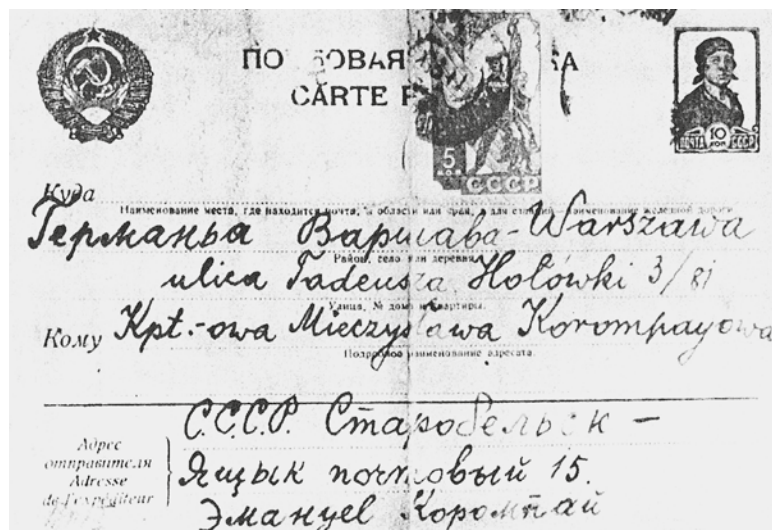 CARTE
5
СССР
ПОЧТА 10 КОП СССР
Куда
Наименование места, где находится почта, и области или края, а для станций наименование железной дороги
Германья Варшава-Warszawa
Район, село или деревня.
ulica Tadeusza Hołówki 3/81
Улица, № дома и квартиры.
Кому Kpt.-owa Mieczysława Korompayowa
Подробное наименование адресата.
С.С.С.Р. Старобельск –
Адрес
отправителя
Adresse
de l'expéditeur
Ящык почтовый 15.
Эмануел Коромпай